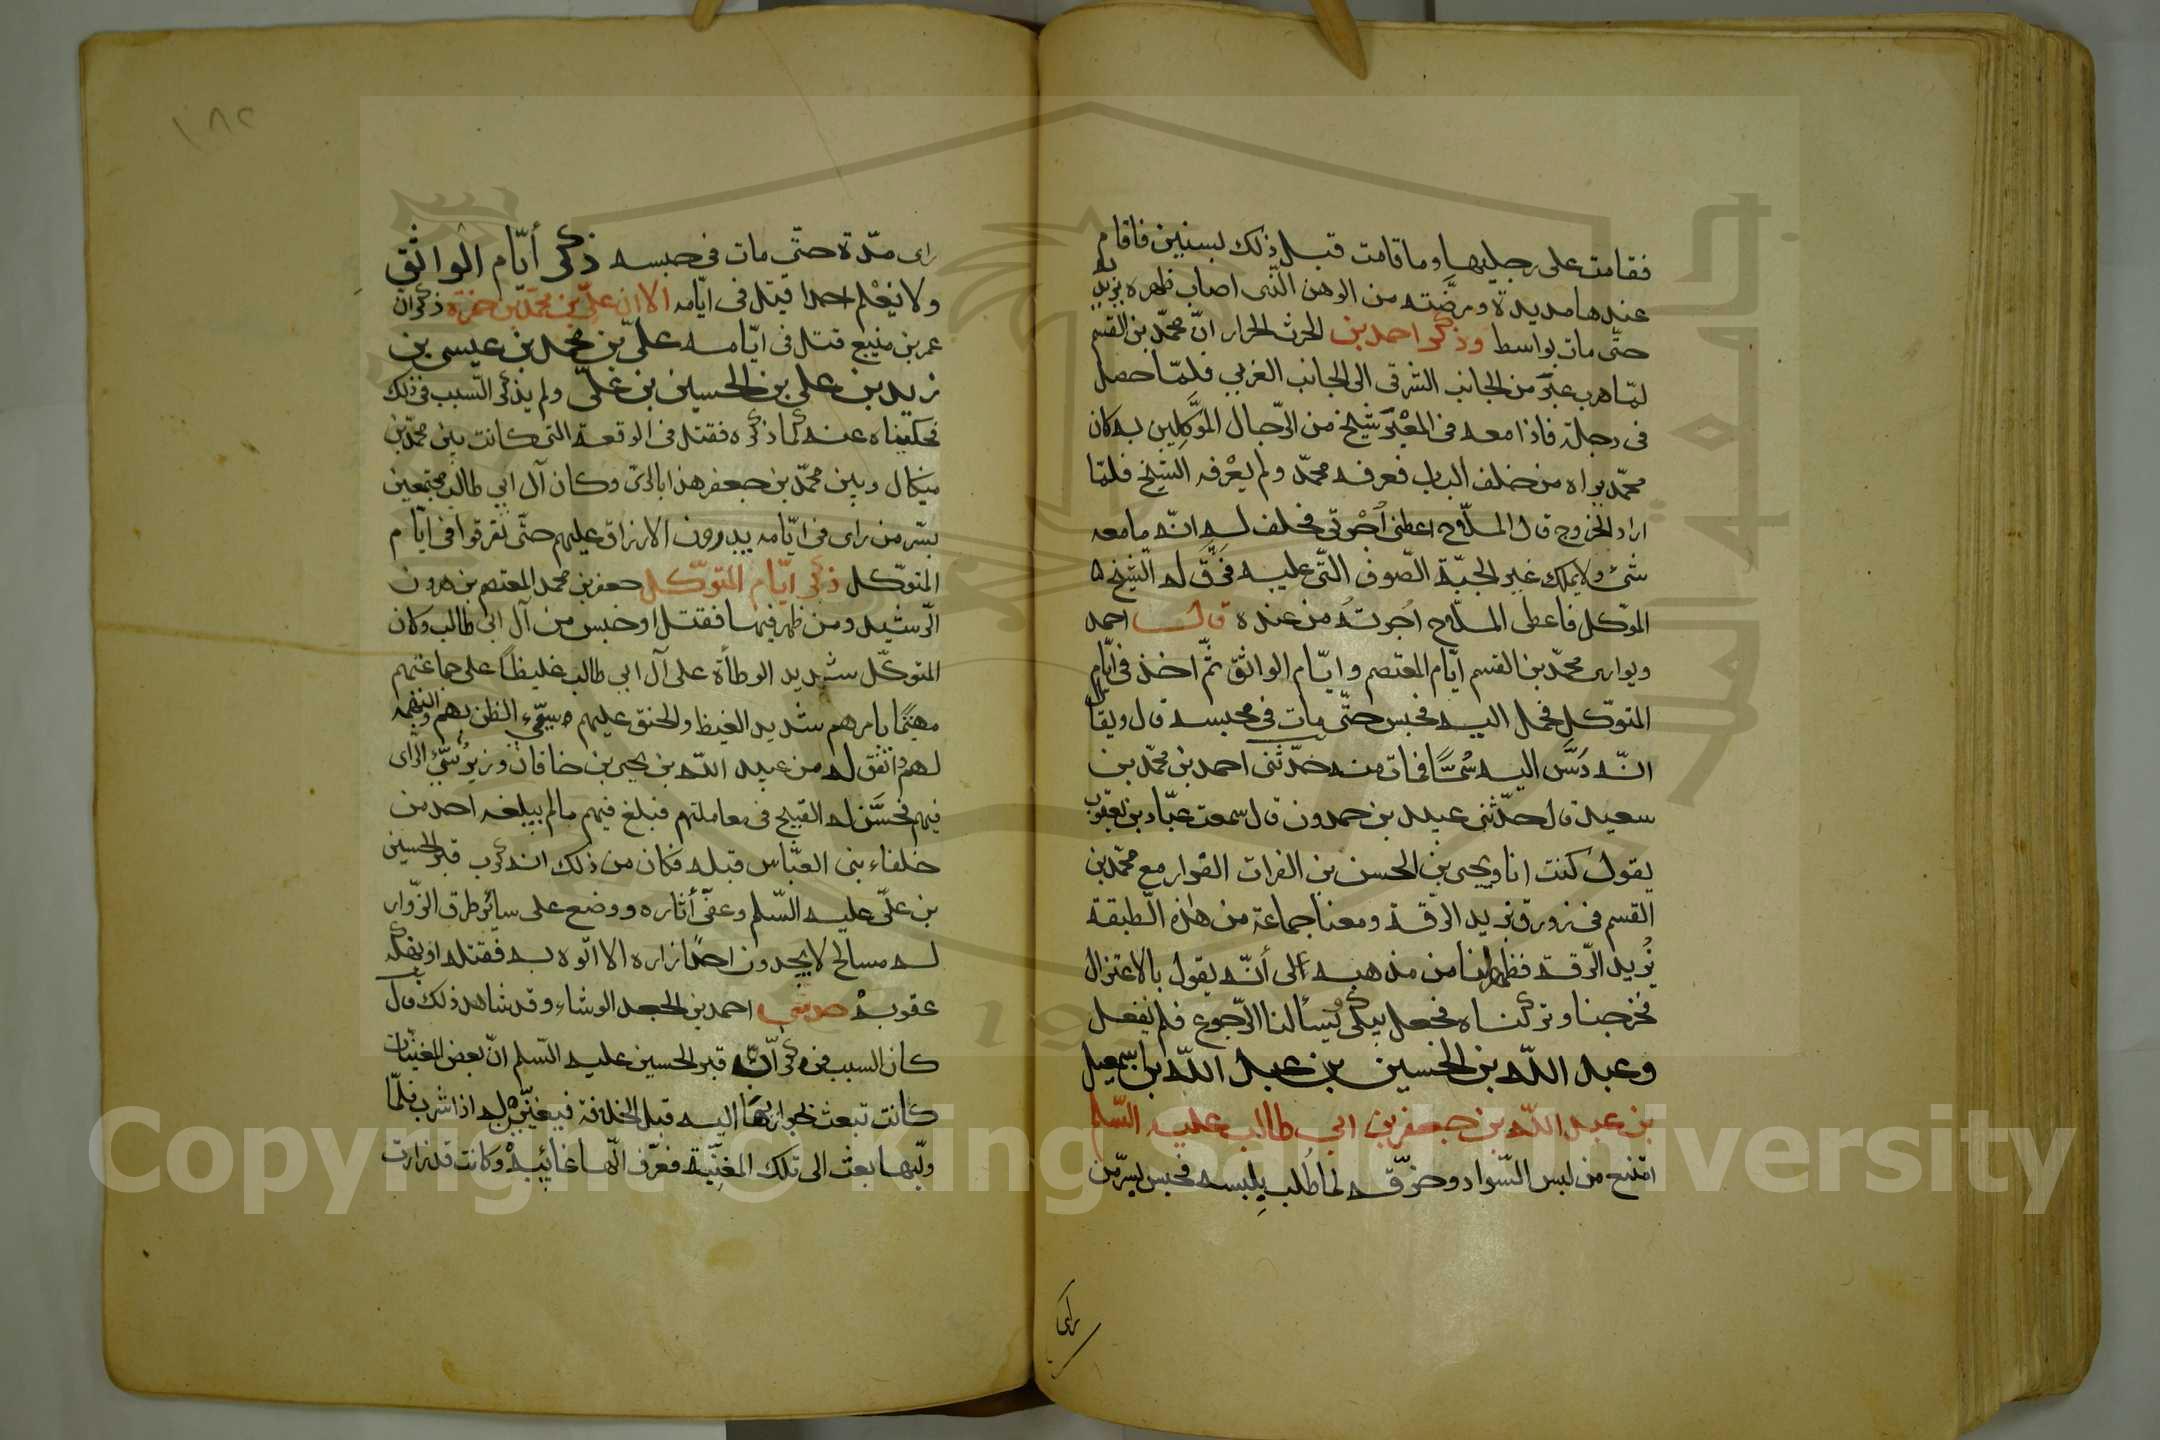 فقامت على رجليها وما قامت قبل ذلك بسنين فاقام
عندها مديدة ومرضته من الوهن الّذى اصاب ظهره بزيد
حتّى مات بواسط وذكر احمد بن الحرث الخراز انّ محمّد بن القسم
لمّا هرب عبَر من الجانب الشرقى الى الجانب الغربي فلمّا حصل
فى دجلة فاذا معه فى المعْبَر شيخ من الرّجال الموَكلِين به كان
محمّد يراه من خلف الباب فعرفه محمّد ولم يعْرفه الشّيخ فلمّا
اراد الخروج قال الملّاح اعطنى اُجْرتى فحلف له انّه مامعه
شئ ولا يملك غير الجبّة الصّوف الّتى عليه فَرَقَّ له الشّيخ
الموكل فاعطى الملّاح اُجرتهُ من عنده قال احمد
وتوارى محمّد بن القسم ايّام المعتصم وايّام الواثق ثمّ اخذ فى ايّام
المتوكّل فحمل اليه فحبس حتّى مات فى محبسه قال ويقال
انّه دَسَّ اليه سُمًّا فمات منه حدّثنى احمد بن محمّد بن
سعيد قال حدّثنى عبيد بن حمدون قال سمعت عبّاد بن يعقوب
يقول كنت انا ويحيى بن الحسن بن الفرات القزار مع محمّد بن
القسم فى زورق نريد الرّقة ومعنا جماعة من هذه الطبقة
نُريد الرّقة فظهر لنا من مذهبه الى أنّه يقول بالاعتزال
فخرجنا وتركناه فجعل يبكى ويُسألنا الرّجوع فلم نفعل
وعبد اللّه بن الحسين بن عبد اللّه بن اسمعيل
بن عبد اللّه بن جعفر بن ابي طالب عليه السّلم
امتنع من لبس السّواد وخرّقه لما طُلب بلبسه فحبس بسرّ من
راى
١٨٢
راى مدّة حتّى مات فى حبسه ذكر أيّام الواثق
ولا نعْلم احدا قتل فى ايّامه الا ان علىّ بن محمّد بن حمزة ذكر انّ
عمر بن منيع قتل فى ايّامه علىّ بن محمد بن عيسى بن
زيد بن على بن الحسين بن علىّ ولم يذكر السّبب فى ذلك
فحكيناه عنه كما ذكره فقتل فى الوقعة التى كانت بين محمّد بن
ميكال وبين محمّد بن جعفر هذا بالرّى وكان آل ابي طالب مجتمعين
بسّر من راى فى ايّامه يدرون الارزاق عليهم حتّى تفرقوا فى ايّام
المتوكّل ذكر ايّام المتوكّل جعفر بن محمد المعتصم بن هرون
الرّشيد ومن ظهر فيها فقتل او حبس من آل ابى طالب وكان
المتوكّل شديد الوطأة على آل ابي طالب غليظًا على جماعتهم
مهتمًا بامرهم شديد الغيظ والحنق عليهم سيّيء الظن بهم والتهمه
لهم واتّفق له من عبيد اللّه بن يحيى بن خاقان وزيرُه سيّئ الرّأى
فيهم فحسَّن له القبيح فى معاملتهم فبلغ فيهم مالم يبلغه احد من
خلفاء بنى العبّاس قبله فكان من ذلك انه كرب قبر الحسين
بن علىّ عليه السّلم وعفّى أثاره ووضع على سائر طرق الزوّار
له مسالح لا يجدون احدًا زاره الا اتّوه به فقتله او نهكه
عقوبةً حدثني احمد بن الجعد الوشاء وقد شاهد ذلك قال
كان السبب فى كرْ قبر الحسين عليه السّلم انّ بعض المغنيّات
كانت تبعث بجواريها اليه قبل الخلافة فيغنّيْن له اذا شرب فلمّا
وليّها بعث الى تلك المغنّية فعُرّف انّها غائبة وكانت قد زارت
Copyright © King Saud University
1957